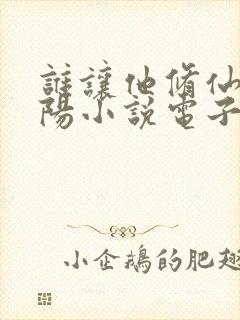 誰讓他脩仙
陽小説電子
小企鵝的肥翅